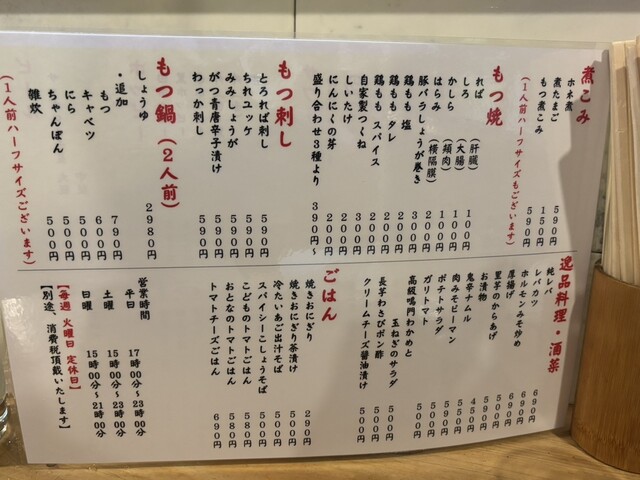 煮こみ
ホネ煮 590円
煮たまご 150円
もつ煮こみ 590円
(1人前ハーフサイズもございます)
もつ焼
れば (肝臓) 100円
しろ (大腸) 100円
かしら (頬肉) 100円
はらみ (横隔膜) 200円
豚バラしょうが巻き 300円
鶏もも 塩 200円
鶏もも タレ 200円
鶏もも スパイス 200円
自家製つくね 200円
しいたけ 200円
にんにくの芽 200円
盛り合わせ3種より 390円~
もつ刺し
とろれば刺し 590円
ちれユッケ 590円
みみしょうが 590円
がつ青唐辛子漬け 590円
わっか刺し 590円
もつ鍋(2人前)
しょうゆ 2980円
・追加
もつ 790円
キャベツ 600円
にら 500円
ちゃんぽん 500円
雑炊 500円
(1人前ハーフサイズございます)
逸品料理・酒菜
純レバ 690円
レバカツ 690円
ホルモンみそ炒め 690円
厚揚げ 690円
里芋のからあげ 590円
お漬物 500円
鬼辛ナムル 450円
肉みそピーマン 590円
ポテトサラダ 500円
ガリトマト 500円
高級鳴門わかめと
玉ねぎのサラダ 500円
長芋わさびポン酢 500円
クリームチーズ醤油漬け 500円
ごはん
焼きおにぎり 290円
焼きおにぎり茶漬け 500円
冷たいあご出汁そば 500円
スパイシーこしょうそば 500円
こどものトマトごはん 500円
おとなのトマトごはん 580円
トマトチーズごはん 690円
営業時間
平日 17時00分~23時00分
土曜 15時00分~23時00分
日曜 15時00分~21時00分
【毎週 火曜日 定休日】
【別途、消費税頂戴いたします】